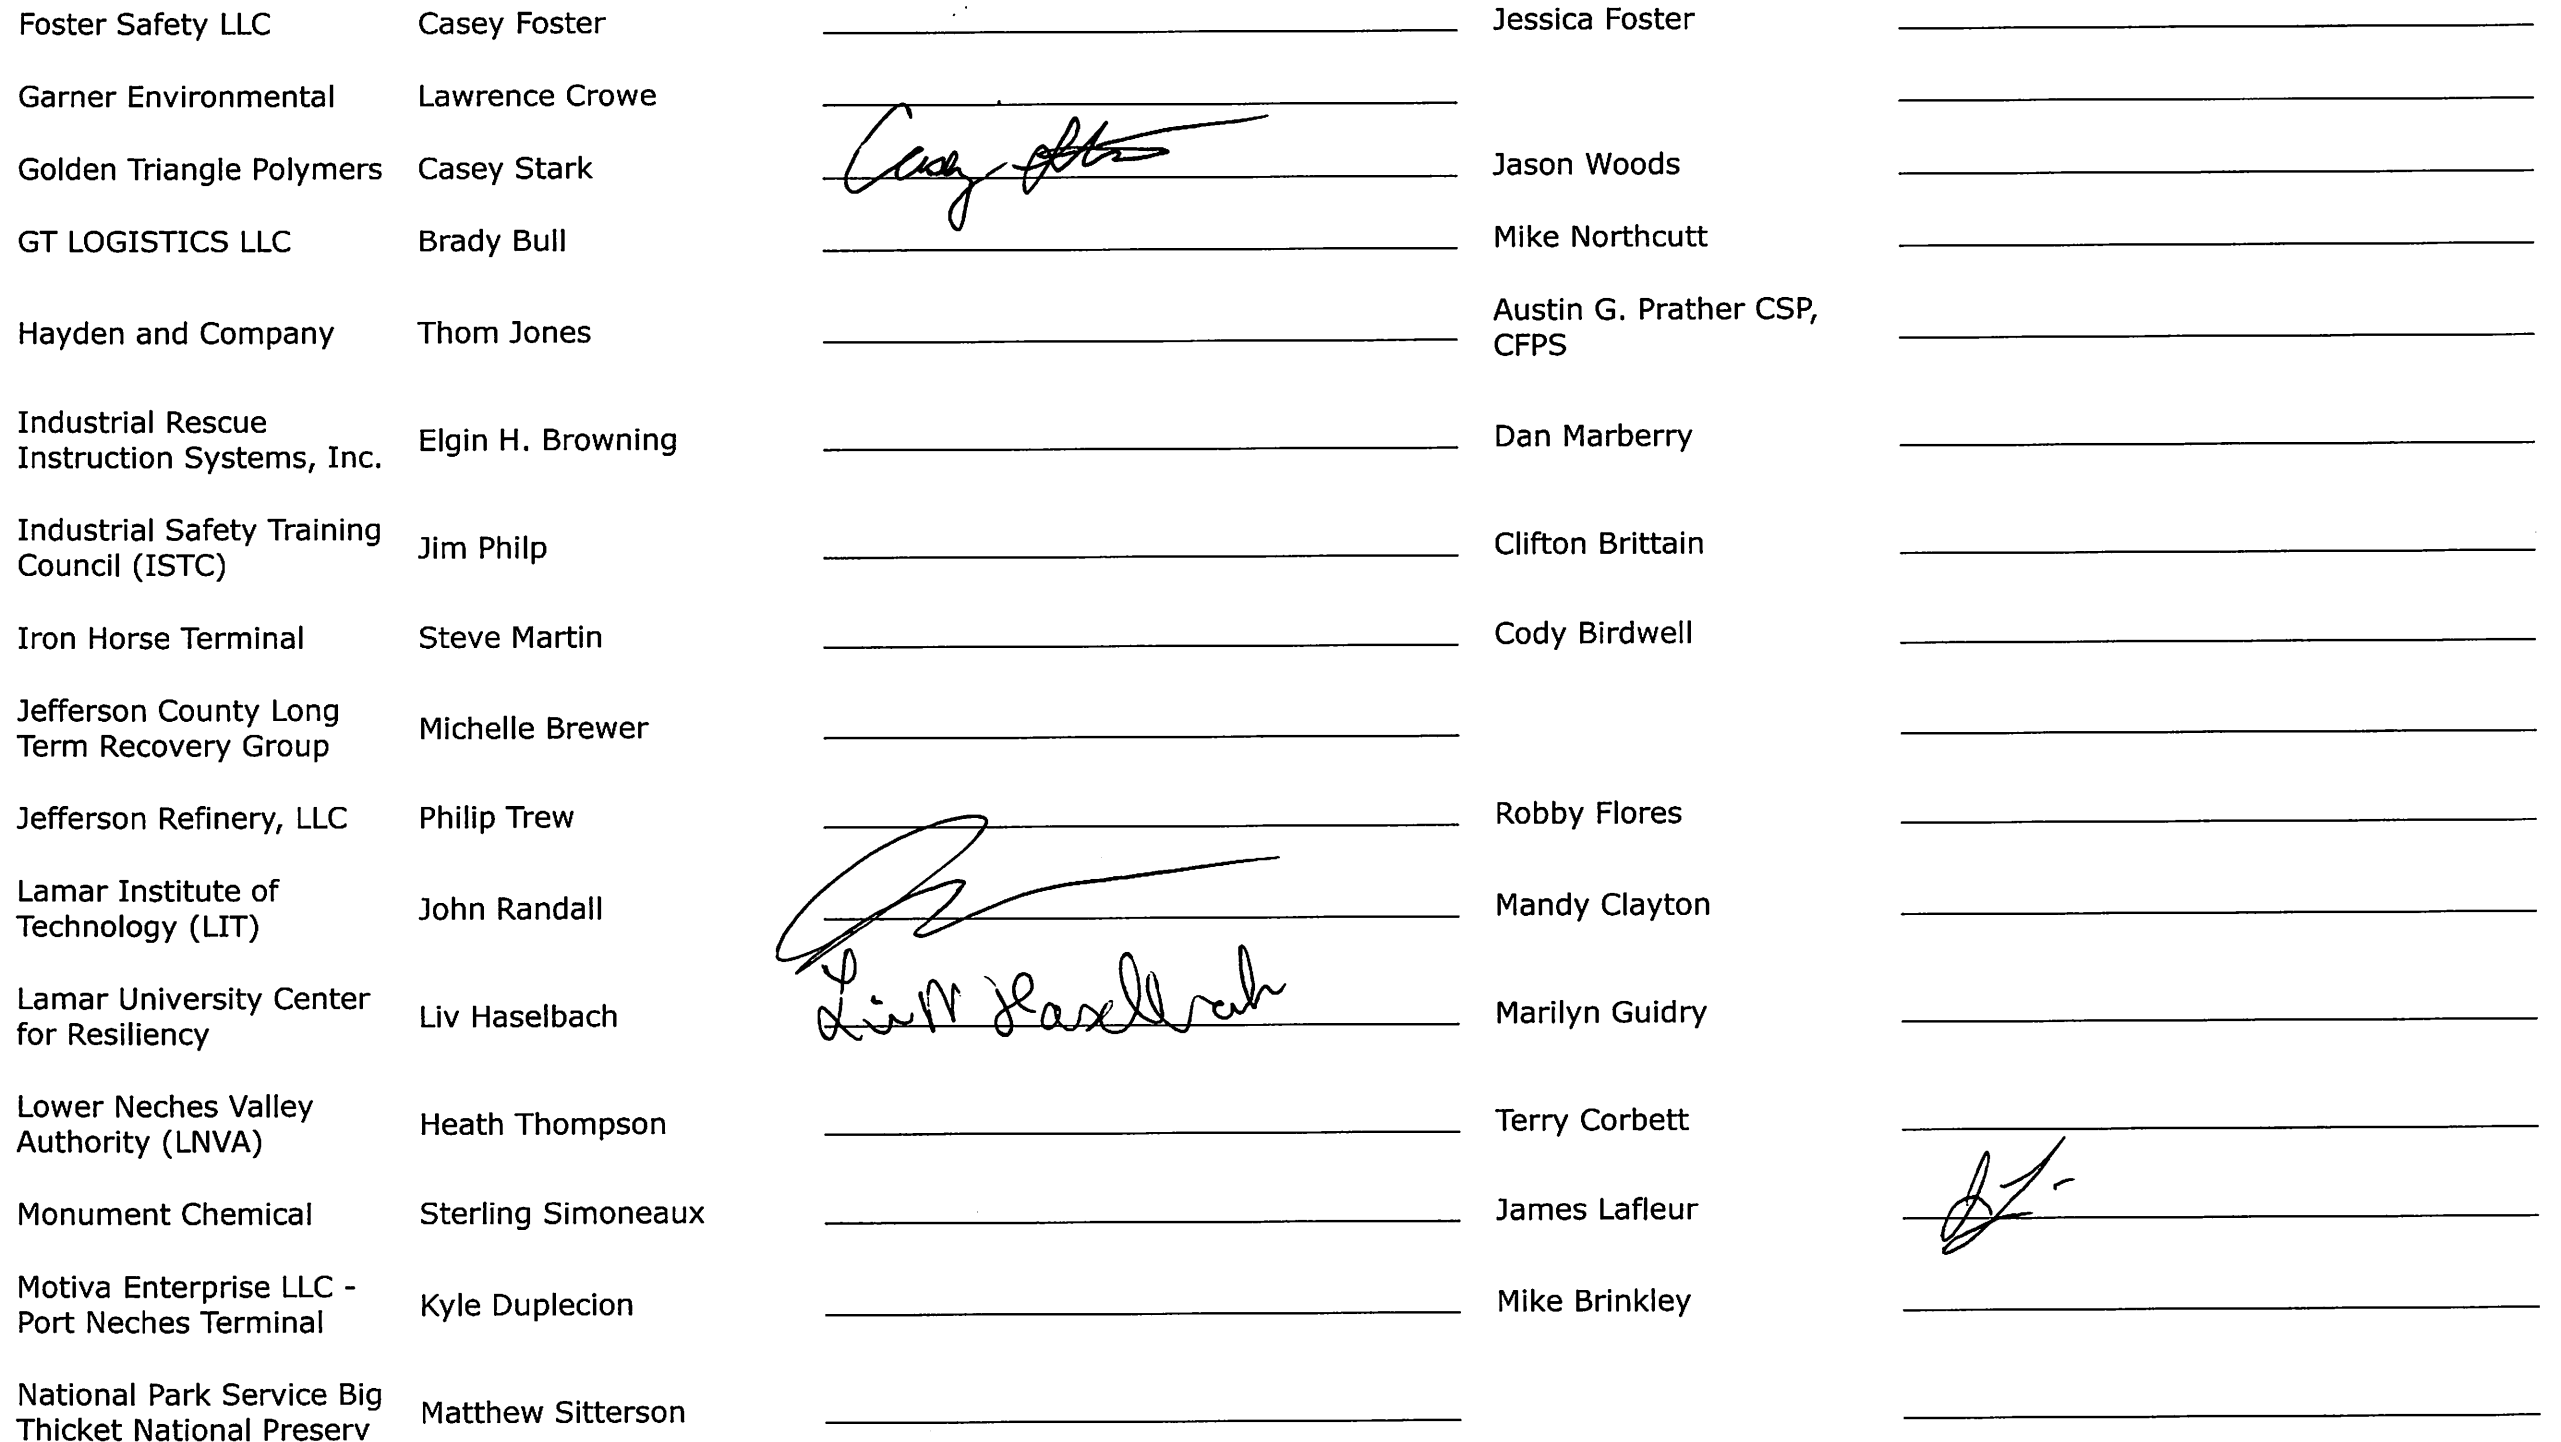 Foster Safety LLC Casey Foster Jessica Foster
Garner Environmental Lawrence Crowe
Golden Triangle Polymers Casey Stark Casey Jason Woods
GT LOGISTICS LLC Brady Bull Mike Northcutt
Hayden and Company Thom Jones Austin G. Prather CSP,
CFPS
Industrial Rescue
Instruction Systems, Inc. Elgin H. Browning Dan Marberry
Industrial Safety Training
Council (ISTC) Jim Philp Clifton Brittain
Iron Horse Terminal Steve Martin Cody Birdwell
Jefferson County Long
Term Recovery Group Michelle Brewer
Jefferson Refinery, LLC Philip Trew Robby Flores
Lamar Institute of
Technology (LIT) John Randall Mandy Clayton
Lamar University Center
for Resiliency Liv Haselbach Liv M Haselbach Marilyn Guidry
Lower Neches Valley
Authority (LNVA) Heath Thompson Terry Corbett
Monument Chemical Sterling Simoneaux James Lafleur
Motiva Enterprise LLC -
Port Neches Terminal Kyle Duplecion Mike Brinkley
National Park Service Big
Thicket National Preserv Matthew Sitterson